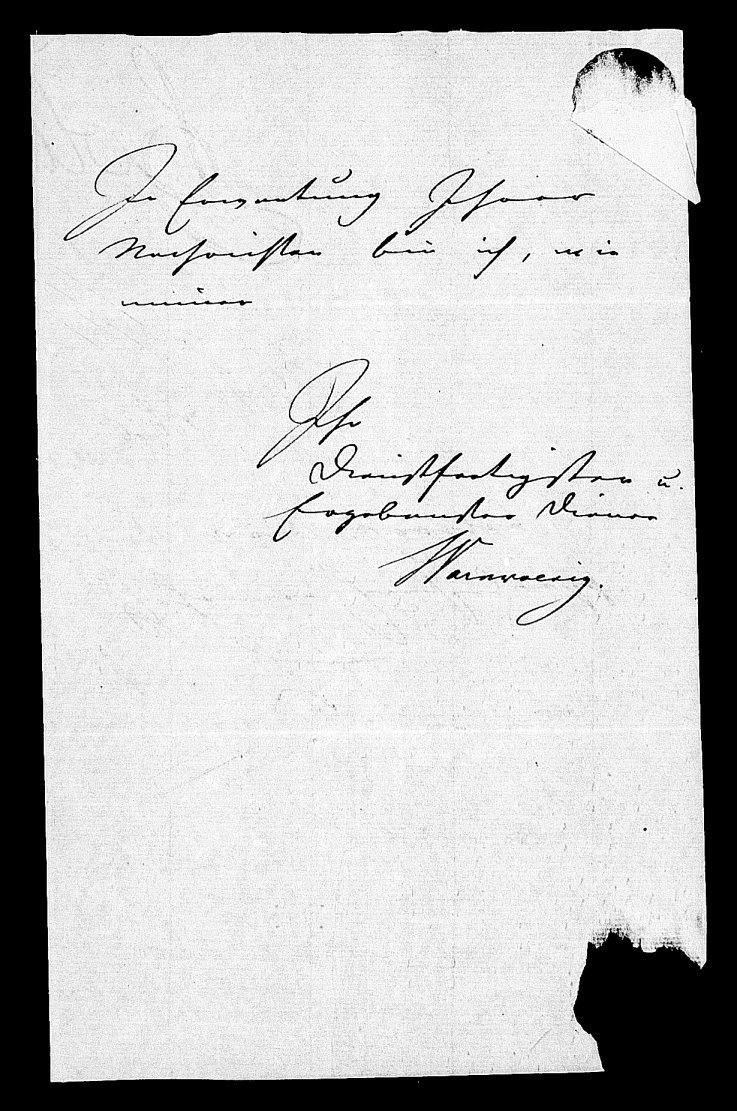 In Erwartung Ihrer
Nachrichten bin ich, wie
immer
Ihr
Dienstfertigster u.
Ergebenster Diener